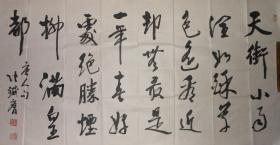 天街小雨
润如酥草
色遥看近
却无最是
一年春好
处绝胜烟
柳满皇
都
唐人句